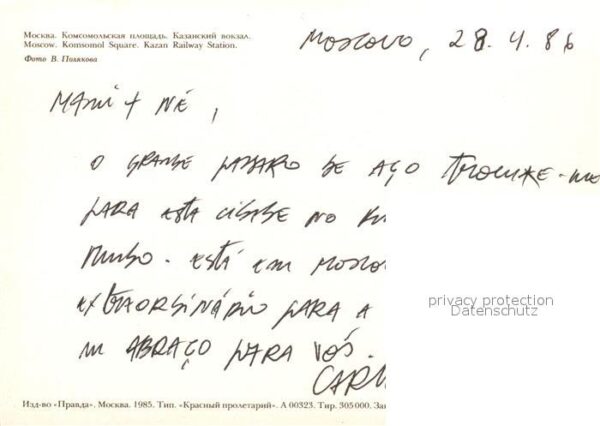 Москва. Комсомольская площадь. Казанский вокзал.
Moscow. Komsomol Square. Kazan Railway Station.
Фото В. Полякова
Moscovo, 28.4.86
MANÉ + NÉ,
O GRANDE PÁSSARO DE AÇO trouxe-me
PARA ESTA CIDADE NO
MUNDO. ESTÁ EM MOSCO
EXTRAORDINÁRIO PARA A
UM ABRAÇO PARA VÓS.
privacy protection
Datenschutz
Изд-во «Правда». Москва. 1985. Тип. «Красный пролетарий». А 00323. Тир. 305 000. Зак